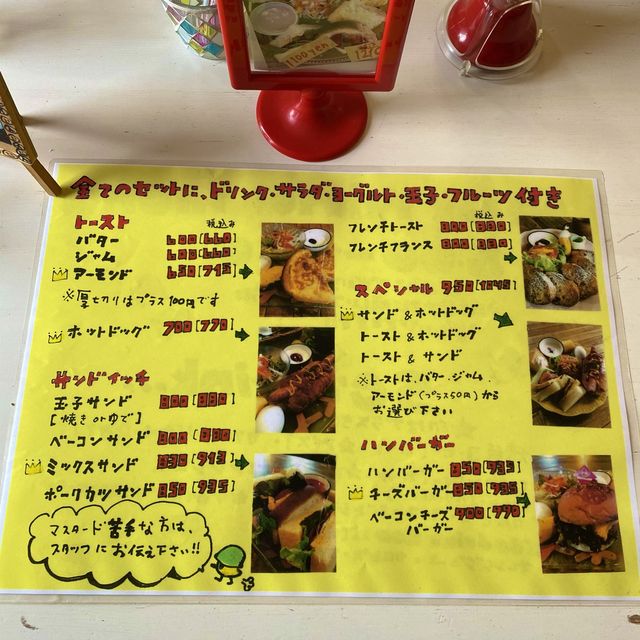 1100yen
全てのセットに、ドリンク・サラダ・ヨーグルト・玉子・フルーツ付き
トースト 税込み
バター 600[660]
ジャム 600[660]
アーモンド 650[715]
※厚切りはプラス100円です
ホットドッグ 700[770]
サンドイッチ
玉子サンド 800[880]
[焼き or ゆで]
ベーコンサンド 800[880]
ミックスサンド 830[913]
ポークカツサンド 850[935]
マスタード苦手な方は、
スタッフにお伝え下さい!!
税込み
フレンチトースト 800[880]
フレンチフランス 800[880]
スペシャル 950[1045]
サンド&ホットドッグ
トースト&ホットドッグ
トースト & サンド
※トーストは、バター、ジャム、
アーモンド(プラス50円)から
お選び下さい
ハンバーガー
ハンバーガー 850[935]
チーズバーガー 850[935]
ベーコンチーズ 900[990]
バーガー